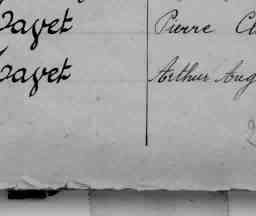 Payet Pierre
Payet Arthur